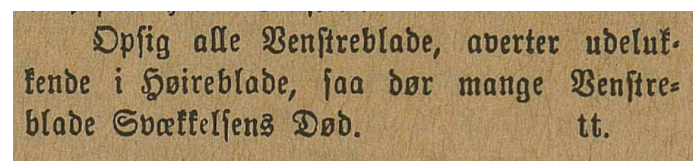 Opsig alle Venstreblade, averter udeluk-
kende i Høireblade, saa dør mange Venstre-
blade Svækkelsens Død. tt.